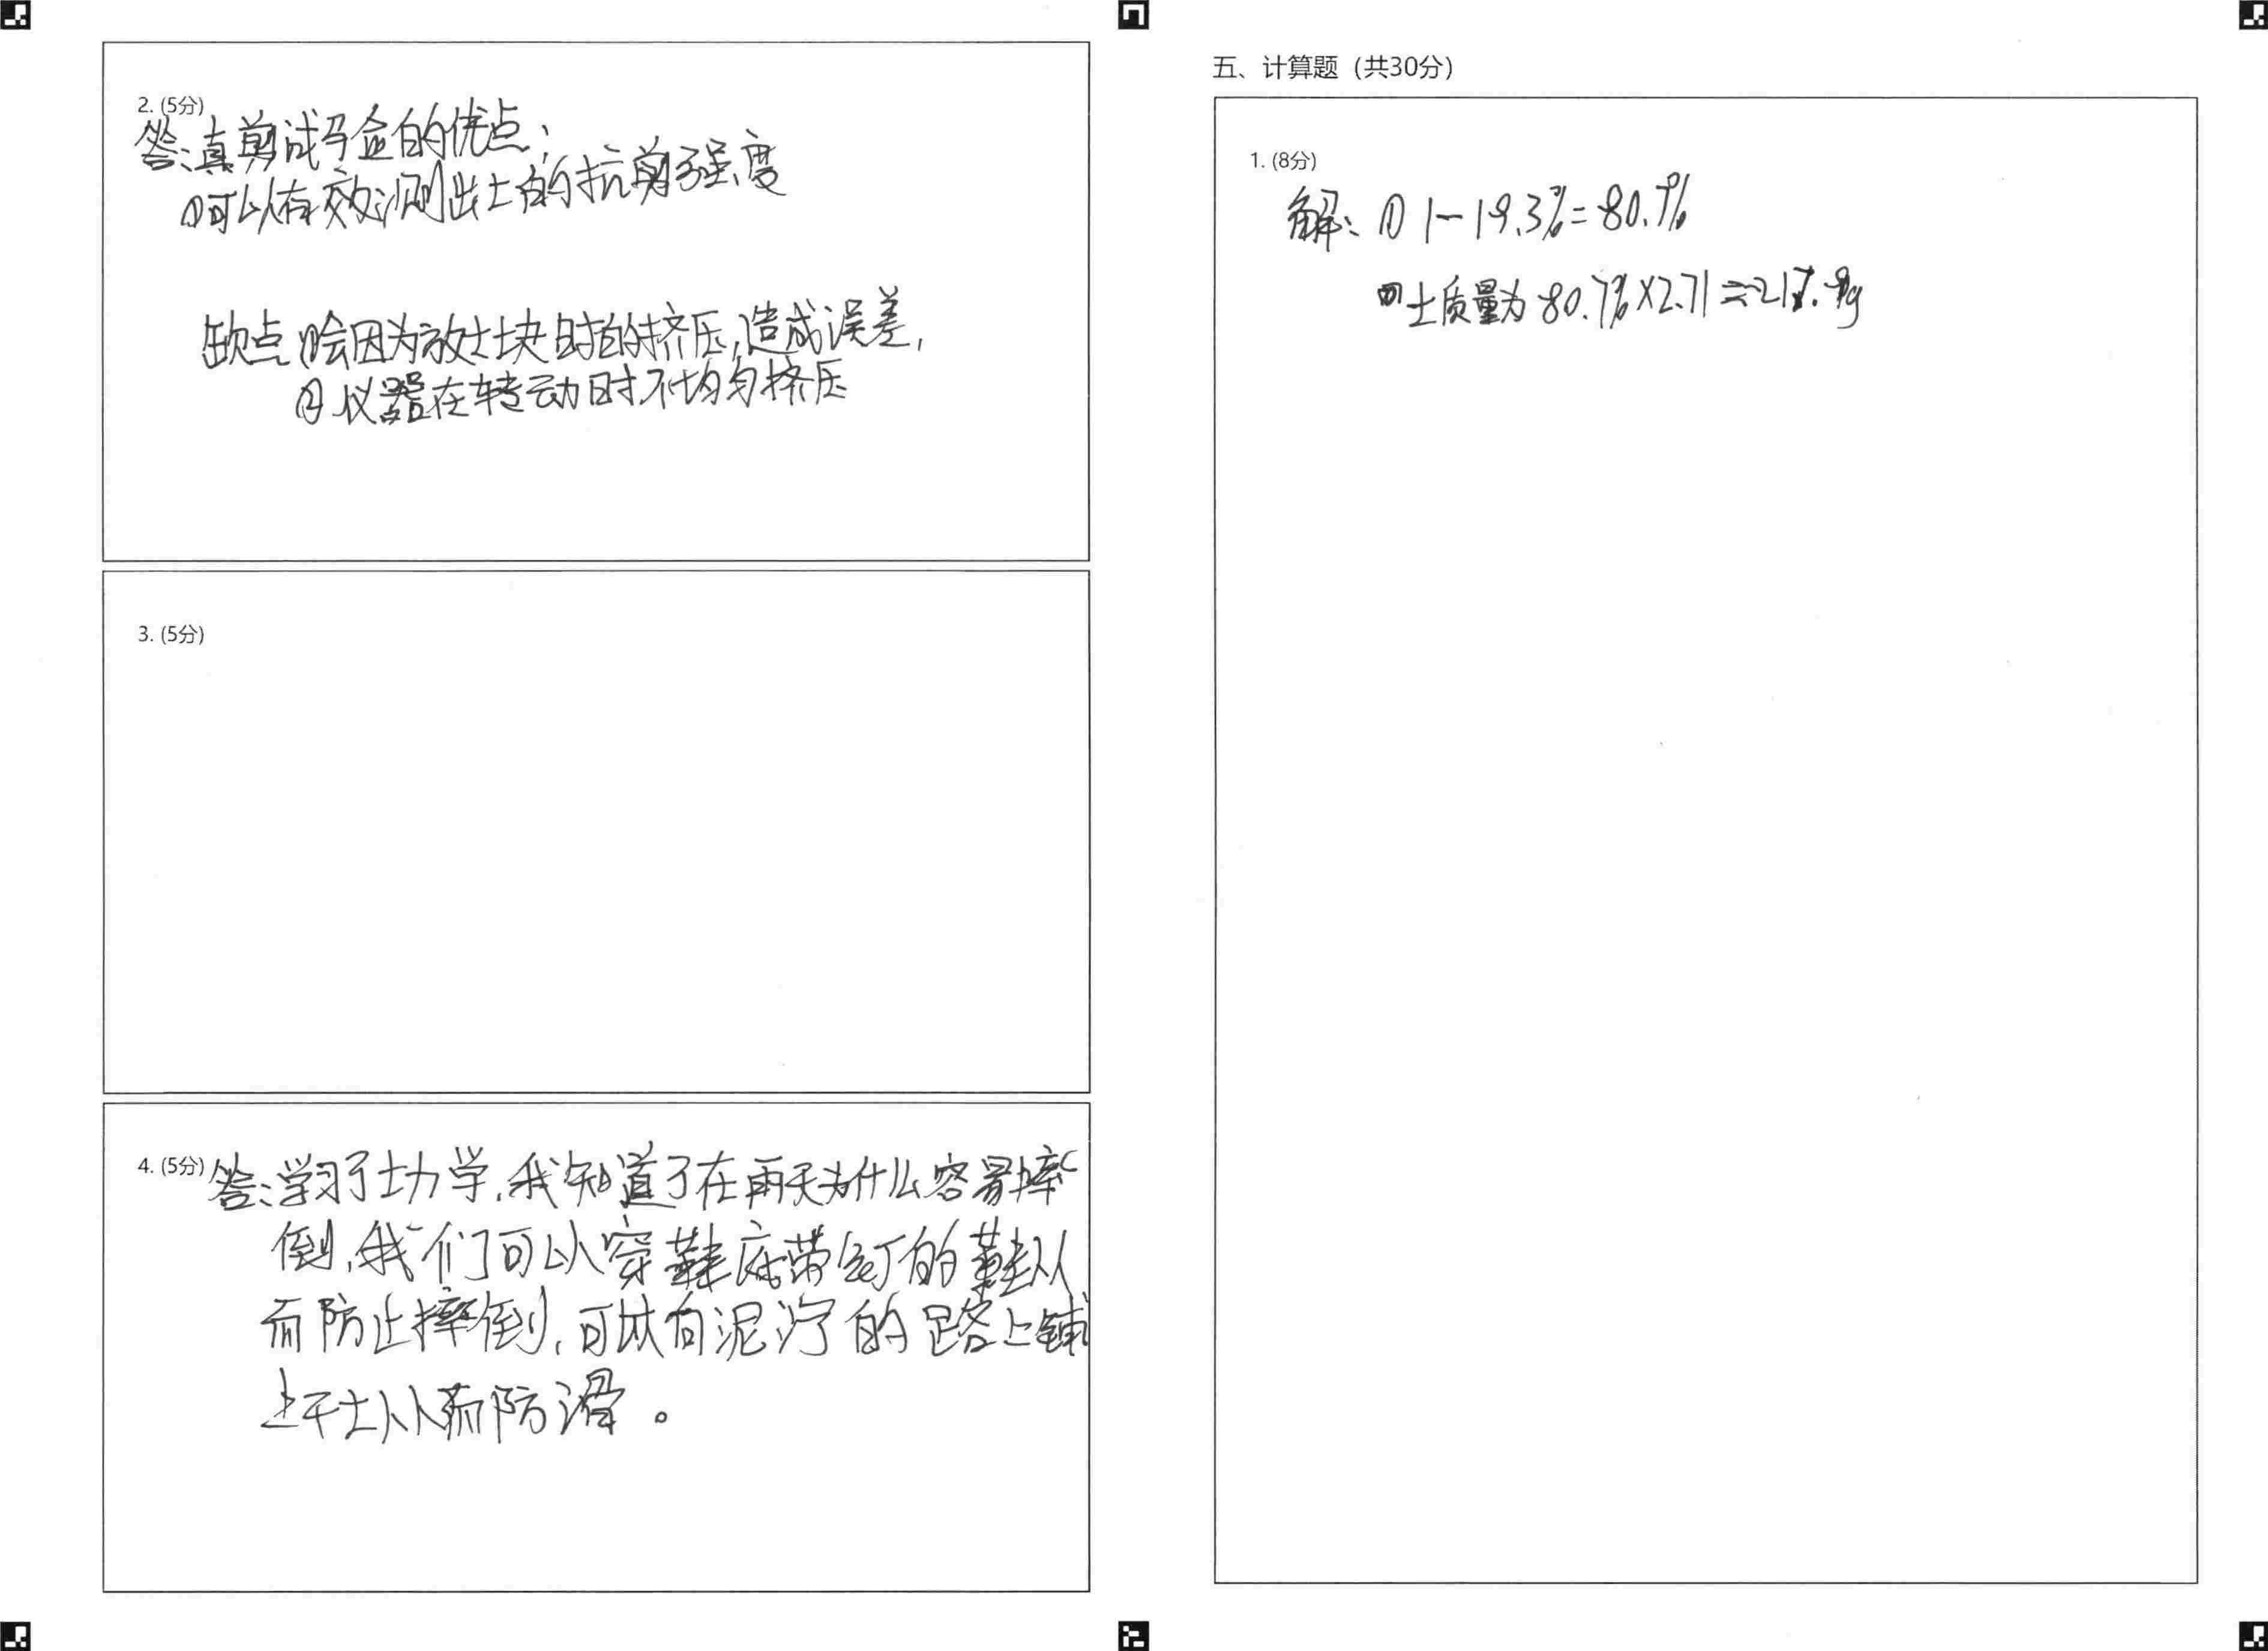 2. (5分)
答:真剪试验的优点:
①可以有效测出土的抗剪强度
缺点①会因为放土块时的挤压,造成误差,
②仪器在转动时不均匀挤压
3. (5分)
4. (5分)
答:学习了土力学,我知道了在雨天为什么容易摔
倒,我们可以穿鞋底带钉的鞋从
而防止摔倒,可以向泥泞的路上铺
上干土从而防滑。
五、计算题（共30分）
1. (8分)
解: ① 1-19.3%=80.7%
土质量为80.7%×2.71≈